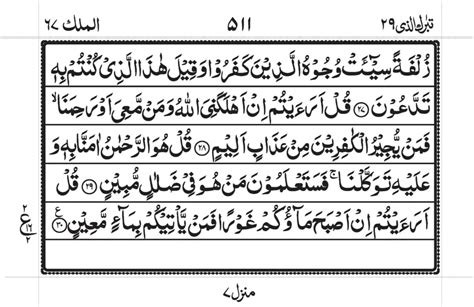 تبرك الذى ٢٩ ٥١١ الملك ٦٧
زُلْفَةً سِيْٓـَٔتْ وُجُوْهُ الَّذِيْنَ كَفَرُوْا وَقِيْلَ هٰذَا الَّذِيْ كُنْتُمْ بِهٖ
تَدَّعُوْنَ ﴿٢٧﴾ قُلْ اَرَءَيْتُمْ اِنْ اَهْلَكَنِيَ اللّٰهُ وَمَنْ مَّعِيَ اَوْ رَحِمَنَا ۙ
فَمَنْ يُّجِيْرُ الْكٰفِرِيْنَ مِنْ عَذَابٍ اَلِيْمٍ ﴿٢٨﴾ قُلْ هُوَ الرَّحْمٰنُ اٰمَنَّا بِهٖ وَ
عَلَيْهِ تَوَكَّلْنَا ۚ فَسَتَعْلَمُوْنَ مَنْ هُوَ فِيْ ضَلٰلٍ مُّبِيْنٍ ﴿٢٩﴾ قُلْ
اَرَءَيْتُمْ اِنْ اَصْبَحَ مَآؤُكُمْ غَوْرًا فَمَنْ يَّاْتِيْكُمْ بِمَآءٍ مَّعِيْنٍ ﴿٣٠﴾
٢
ع ١٦
٢
منزل ٧